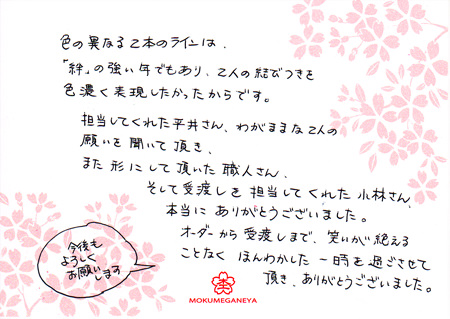 色の異なる2本のラインは、
「絆」の強い年でもあり、2人の結びつきを
色濃く表現したかったからです。
担当してくれた平井さん、わがままな2人の
願いを聞いて頂き、
また形にして頂いた職人さん、
そして受渡しを担当してくれた小林さん、
本当にありがとうございました。
オーダーから受渡しまで、笑いが絶える
ことなくほんわかした一時を過ごさせて
頂き、ありがとうございました。
今後も
よろしく
お願い
します
MOKUMEGANEYA